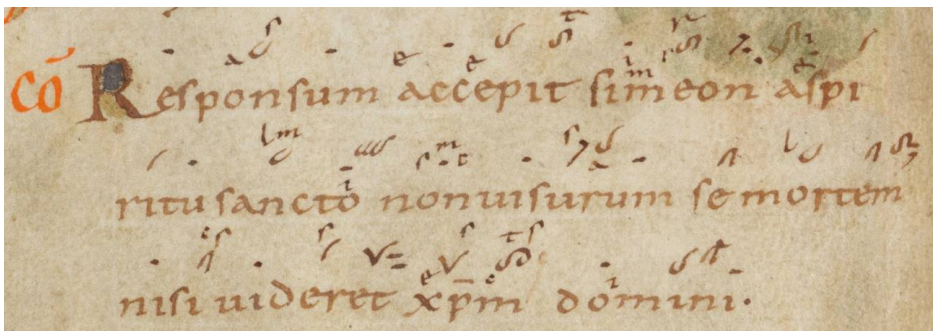 Cō Responsum accepit simeon aspi
ritu sancto non uisurum se mortem
nisi uideret xp̄m domini.